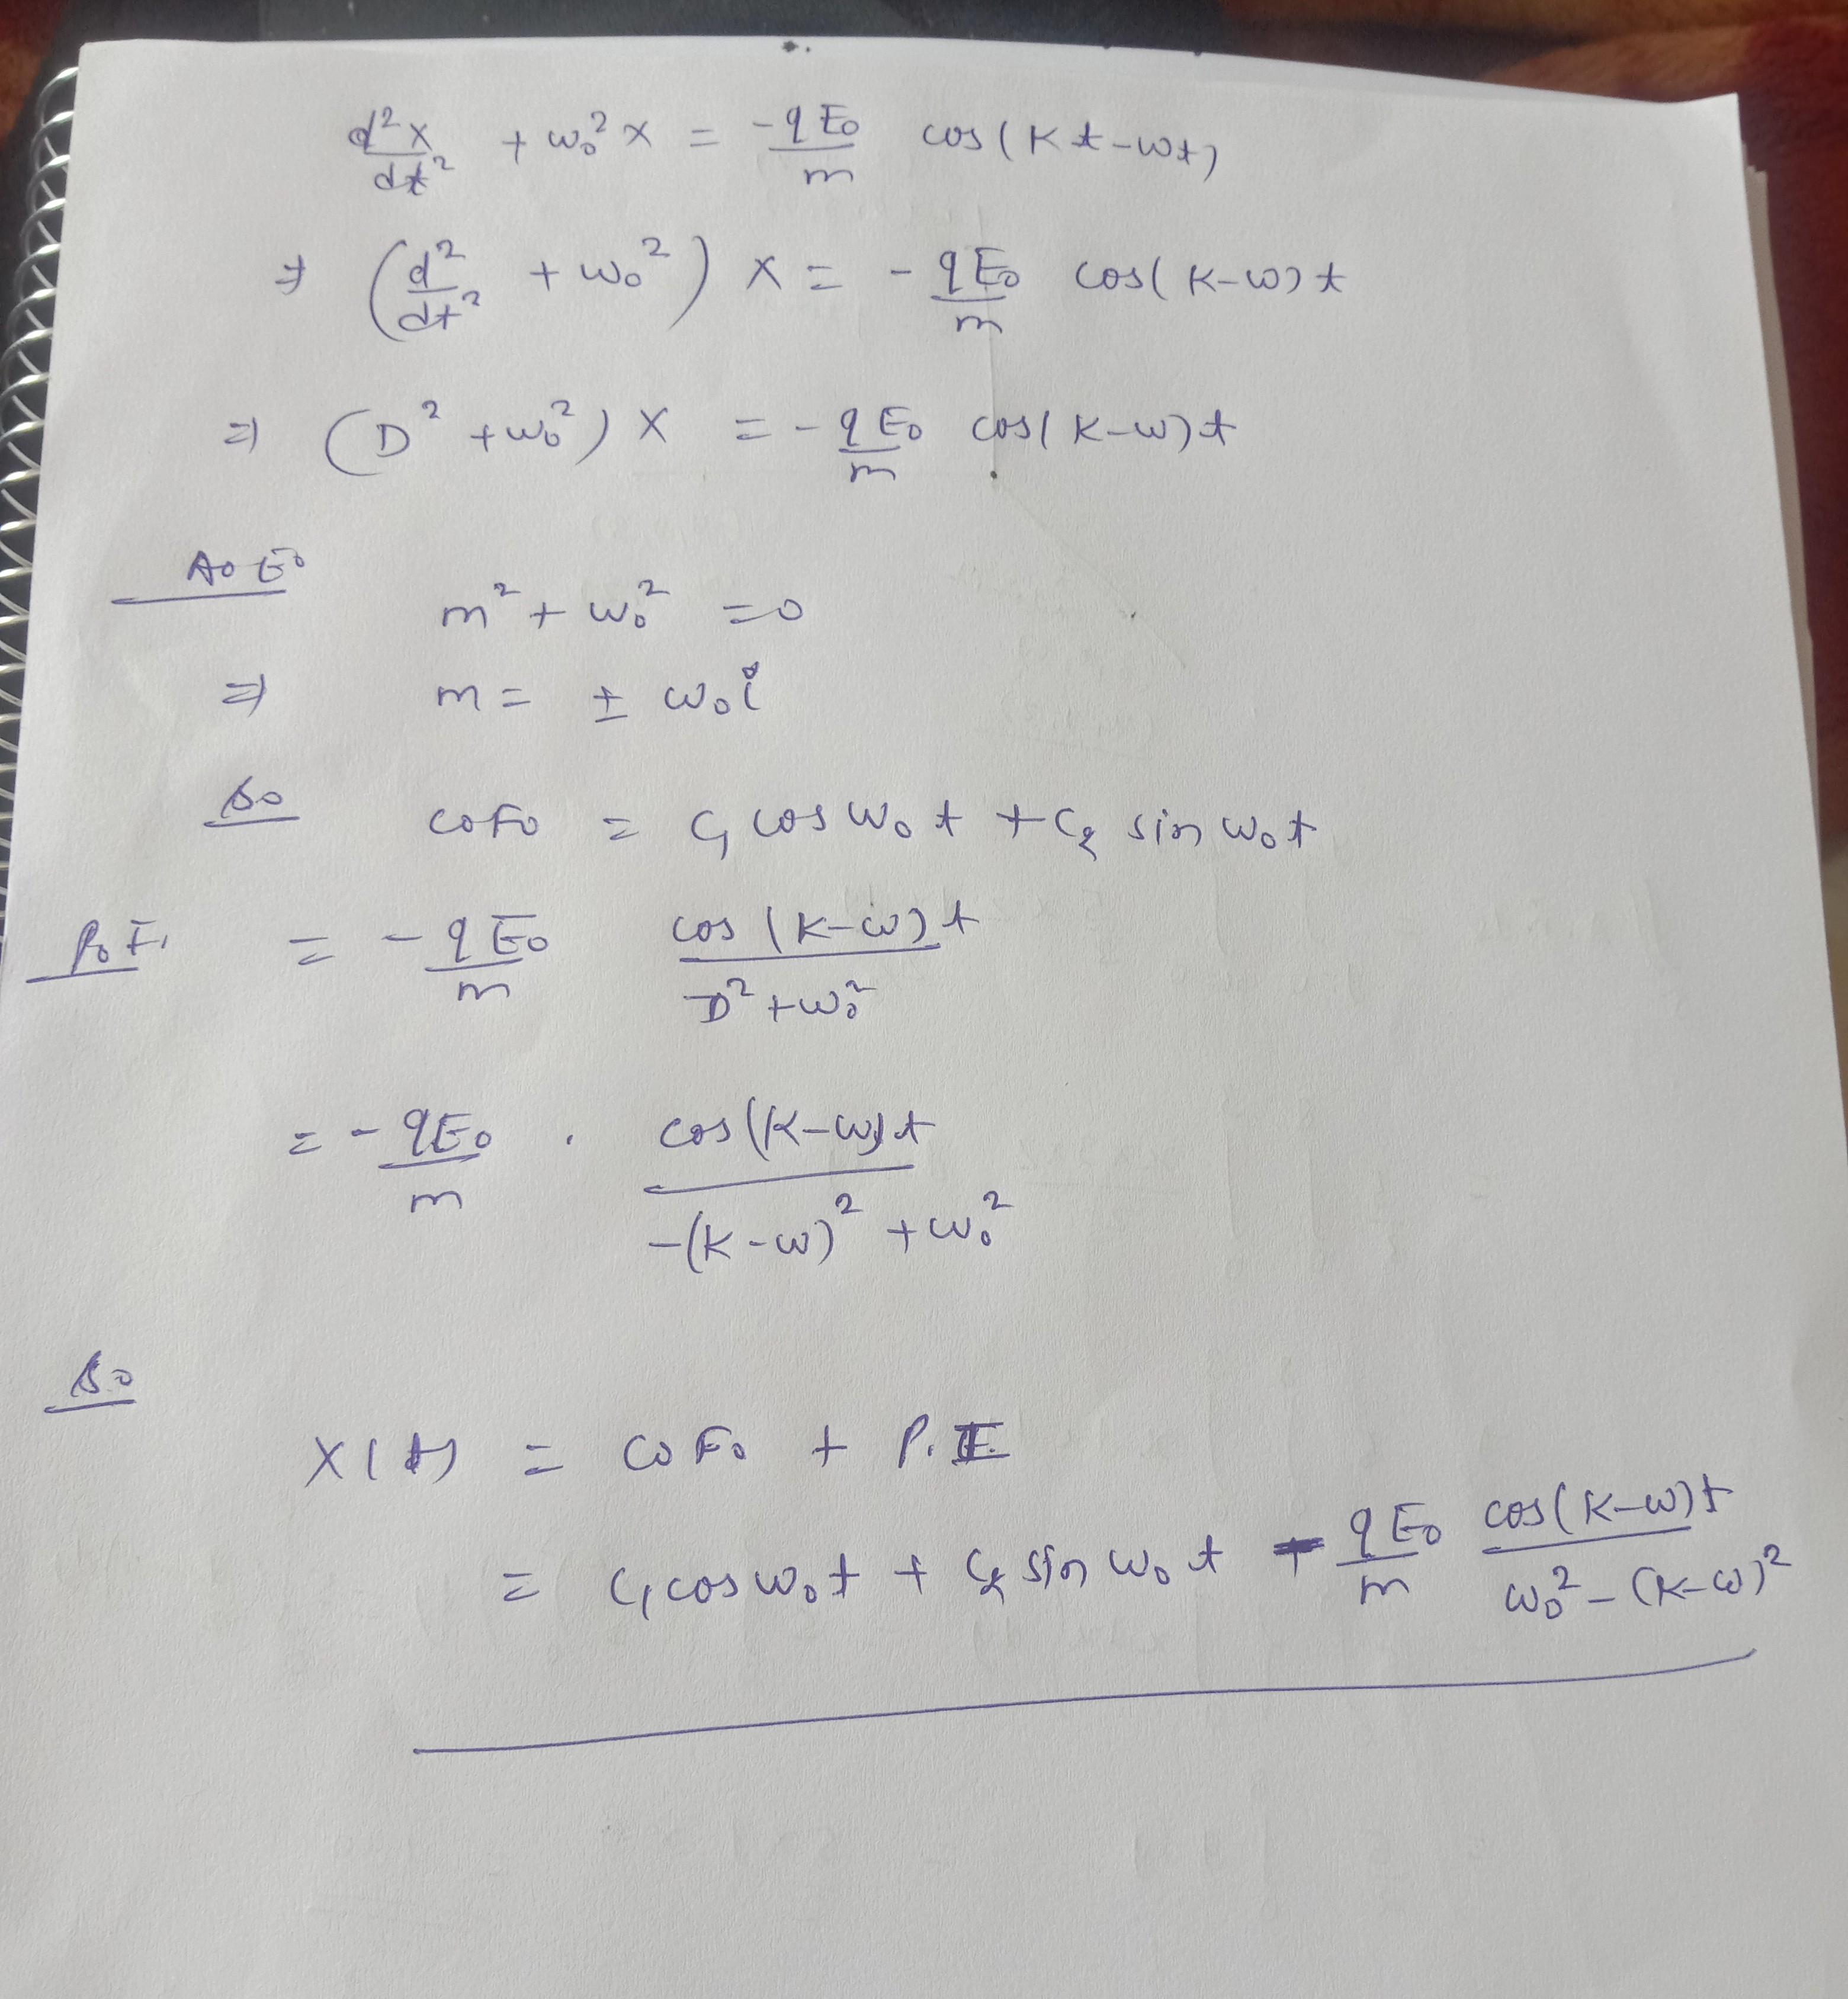 d²x/dt² + ω₀² x = -qE₀/m cos(Kt-ωt)
⇒ (d²/dt² + ω₀²) x = - qE₀/m cos(K-ω)t
⇒ (D² + ω₀²) x = - qE₀/m cos(K-ω)t
A.E.
m² + ω₀² = 0
⇒ m = ± ω₀i
So C.F. = C₁ cos ω₀t + C₂ sin ω₀t
P.I. = - qE₀/m cos(K-ω)t/D²+ω₀²
= - qE₀/m . cos(K-ω)t/-(K-ω)² + ω₀²
So
x(t) = C.F. + P.I.
= C₁ cos ω₀t + C₂ sin ω₀t - qE₀/m cos(K-ω)t/ω₀² - (K-ω)²